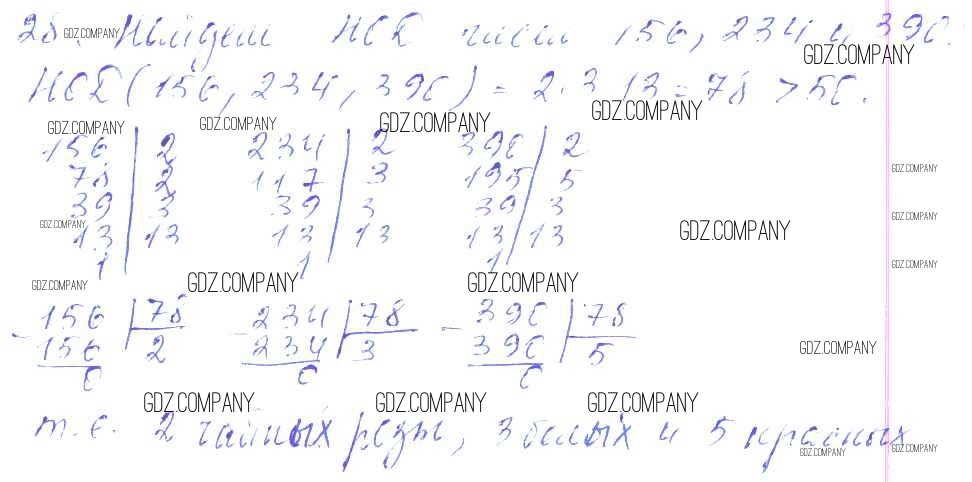 28. GDZ.COMPANY Найдем НОД чисел 156, 234 и 390.
GDZ.COMPANY
НОД(156, 234, 390) = 2·3·13 = 78 > 50.
GDZ.COMPANY GDZ.COMPANY GDZ.COMPANY GDZ.COMPANY
156 | 2 234 | 2 390 | 2
GDZ.COMPANY
78 | 2 117 | 3 195 | 5
39 | 3 39 | 3 39 | 3
GDZ.COMPANY
GDZ.COMPANY
13 | 13 13 | 13 13 | 13
GDZ.COMPANY
1 1 1
GDZ.COMPANY
GDZ.COMPANY GDZ.COMPANY GDZ.COMPANY
- 156 | 78 - 234 | 78 - 390 | 78
156 | 2 234 | 3 390 | 5
GDZ.COMPANY
0 0 0
GDZ.COMPANY GDZ.COMPANY GDZ.COMPANY
т.е. 2 чайных розы, 3 белых и 5 красных
GDZ.COMPANY GDZ.COMPANY